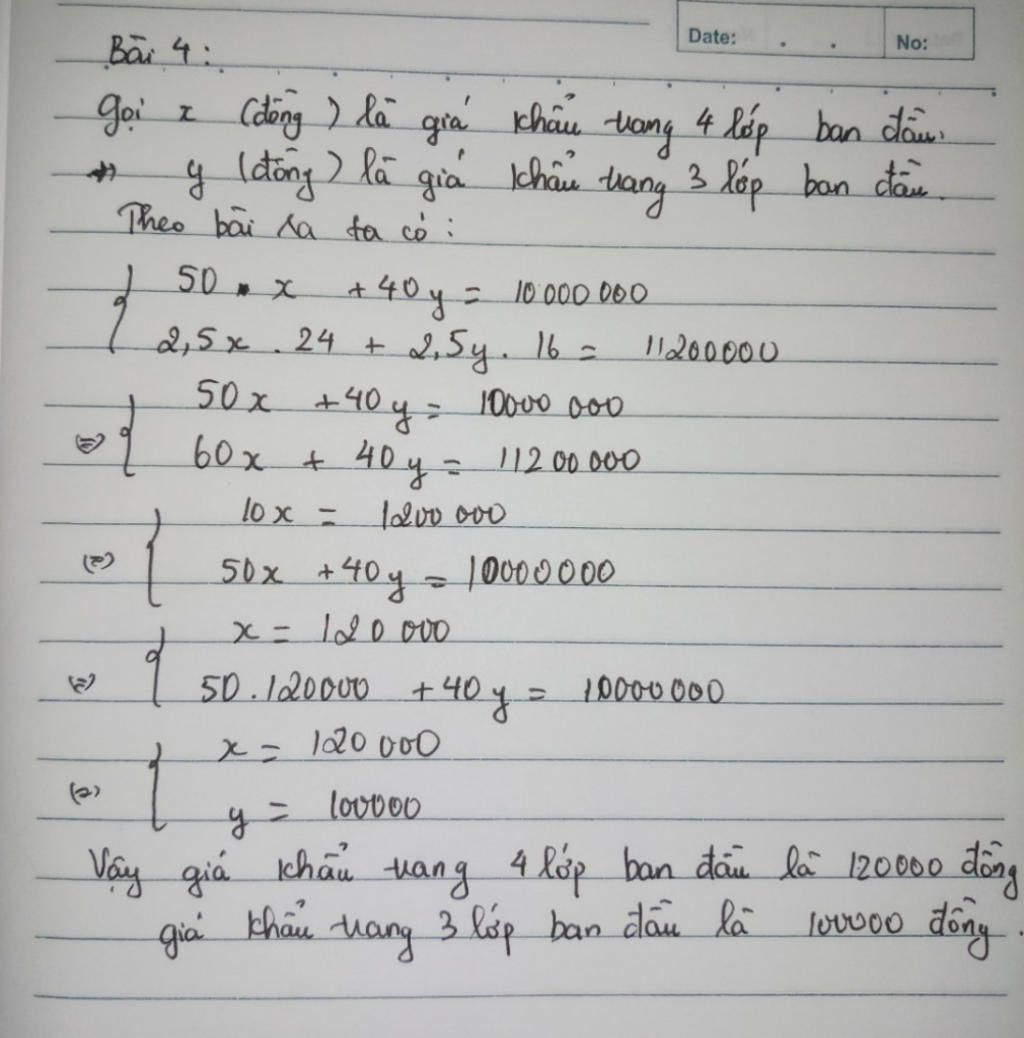 Date: . . No:
Bài 4 :
Gọi x (đồng) là giá khẩu trang 4 lớp ban đầu.
y (đồng) là giá khẩu trang 3 lớp ban đầu.
Theo bài ra ta có :
{ 50 . x + 40y = 10000000
2,5x . 24 + 2,5y . 16 = 11200000
(=) { 50x + 40y = 10000 000
60x + 40y = 11200000
(=) { 10x = 1200 000
50x + 40y = 10000000
(=) { x = 120 000
50.120000 + 40y = 10000000
(=) { x = 120 000
y = 100000
Vậy giá khẩu trang 4 lớp ban đầu là 120000 đồng
giá khẩu trang 3 lớp ban đầu là 100000 đồng.